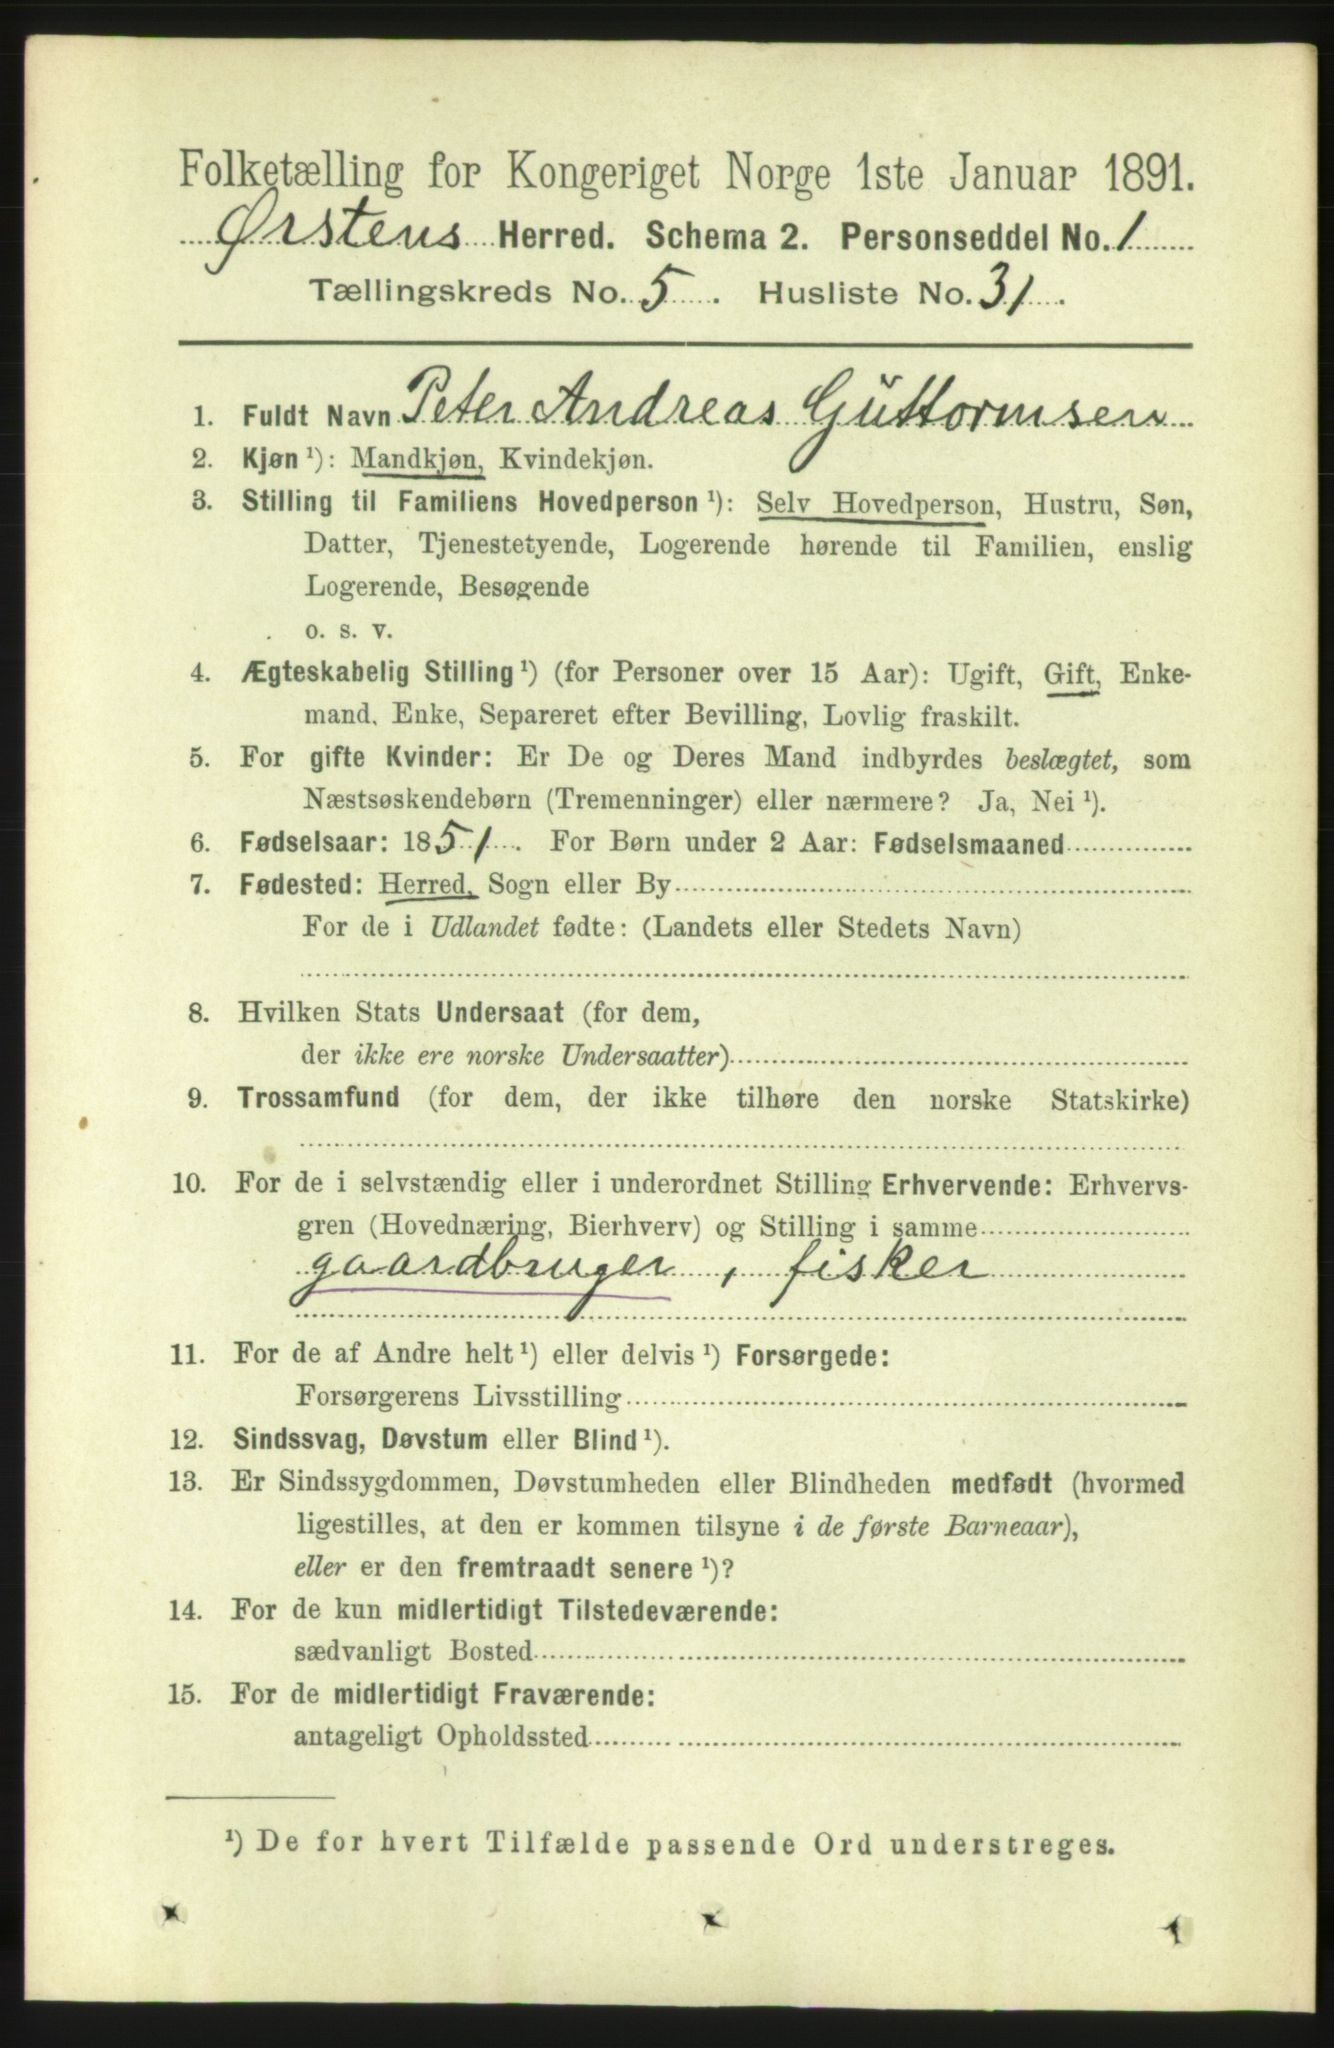 Folketælling for Kongeriget Norge 1ste Januar 1891.
Ørstens Herred. Schema 2. Personseddel No. 1
Tællingskreds No. 5. Husliste No. 31.
1. Fuldt Navn Peter Andreas Guttormsen
2. Kjøn ¹): Mandkjøn, Kvindekjøn.
3. Stilling til Familiens Hovedperson ¹): Selv Hovedperson, Hustru, Søn,
Datter, Tjenestetyende, Logerende hørende til Familien, enslig
Logerende, Besøgende
o. s. v.
4. Ægteskabelig Stilling ¹) (for Personer over 15 Aar): Ugift, Gift, Enke-
mand, Enke, Separeret efter Bevilling, Lovlig fraskilt.
5. For gifte Kvinder: Er De og Deres Mand indbyrdes beslægtet, som
Næstsøskendebørn (Tremenninger) eller nærmere? Ja, Nei ¹).
6. Fødselsaar: 1851. For Børn under 2 Aar: Fødselsmaaned
7. Fødested: Herred, Sogn eller By
For de i Udlandet fødte: (Landets eller Stedets Navn)
8. Hvilken Stats Undersaat (for dem,
der ikke ere norske Undersaatter)
9. Trossamfund (for dem, der ikke tilhøre den norske Statskirke)
10. For de i selvstændig eller i underordnet Stilling Erhvervende: Erhvervs-
gren (Hovednæring, Bierhverv) og Stilling i samme
gaardbruger, fisker
11. For de af Andre helt ¹) eller delvis ¹) Forsørgede:
Forsørgerens Livsstilling
12. Sindssvag, Døvstum eller Blind ¹).
13. Er Sindssygdommen, Døvstumheden eller Blindheden medfødt (hvormed
ligestilles, at den er kommen tilsyne i de første Barneaar),
eller er den fremtraadt senere ¹)?
14. For de kun midlertidigt Tilstedeværende:
sædvanligt Bosted
15. For de midlertidigt Fraværende:
antageligt Opholdssted
¹) De for hvert Tilfælde passende Ord understreges.